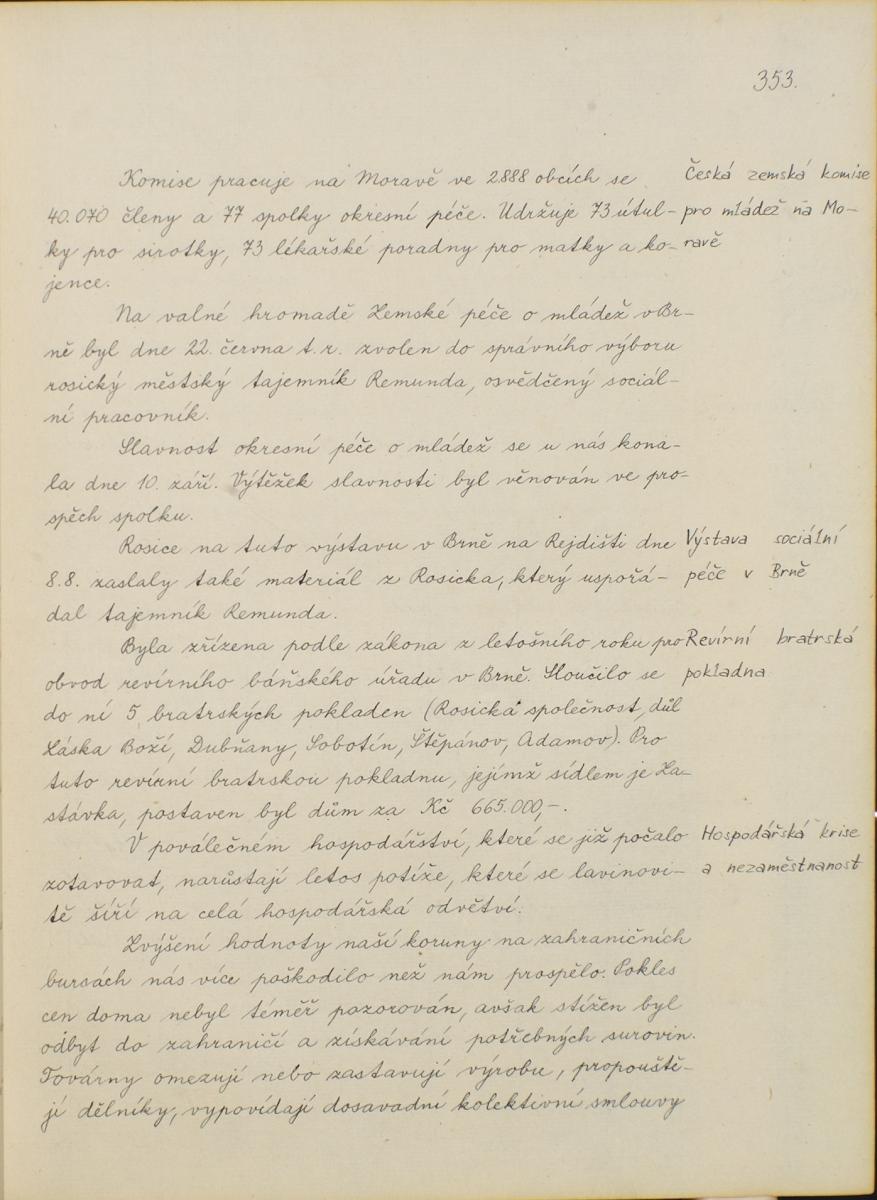 353.
Komise pracuje na Moravě ve 2888 obcích se
Česká zemská komise
40.070 členy a 77 spolky okresní péče. Udržuje 73 útul-
pro mládež na Mo-
ky pro sirotky, 73 lékařské poradny pro matky a ko-
ravě
jence.
Na valné hromadě Zemské péče o mládež v Br-
ně byl dne 22. června t.r. zvolen do správního výboru
rosický městský tajemník Remunda, osvědčený sociál-
ní pracovník.
Slavnost okresní péče o mládež se u nás kona-
la dne 10. září. Výtěžek slavnosti byl věnován ve pro-
spěch spolku.
Rosice na tuto výstavu v Brně na Rejdišti dne
Výstava sociální
8.8. zaslaly také materiál z Rosicka, který uspořá-
péče v Brně
dal tajemník Remunda.
Byla zřízena podle zákona z letošního roku pro
Revírní bratrská
obvod revírního báňského úřadu v Brně. Sloučilo se
pokladna
do ní 5 bratrských pokladen (Rosická společnost, důl
Láska Boží, Dubňany, Sobotín, Štěpánov, Adamov). Pro
tuto revírní bratrskou pokladnu, jejímž sídlem je Za-
stávka, postaven byl dům za Kč 665.000,-.
V poválečném hospodářství, které se již počalo
Hospodářská krise
zotavovat, narůstají letos potíže, které se lavinovi-
a nezaměstnanost
tě šíří na celá hospodářská odvětví.
Zvýšení hodnoty naší koruny na zahraničních
bursách nás více poškodilo než nám prospělo. Pokles
cen doma nebyl téměř pozorován, avšak stížen byl
odbyt do zahraničí a získávání potřebných surovin.
Továrny omezují nebo zastavují výrobu, propouště-
jí dělníky, vypovídají dosavadní kolektivní smlouvy